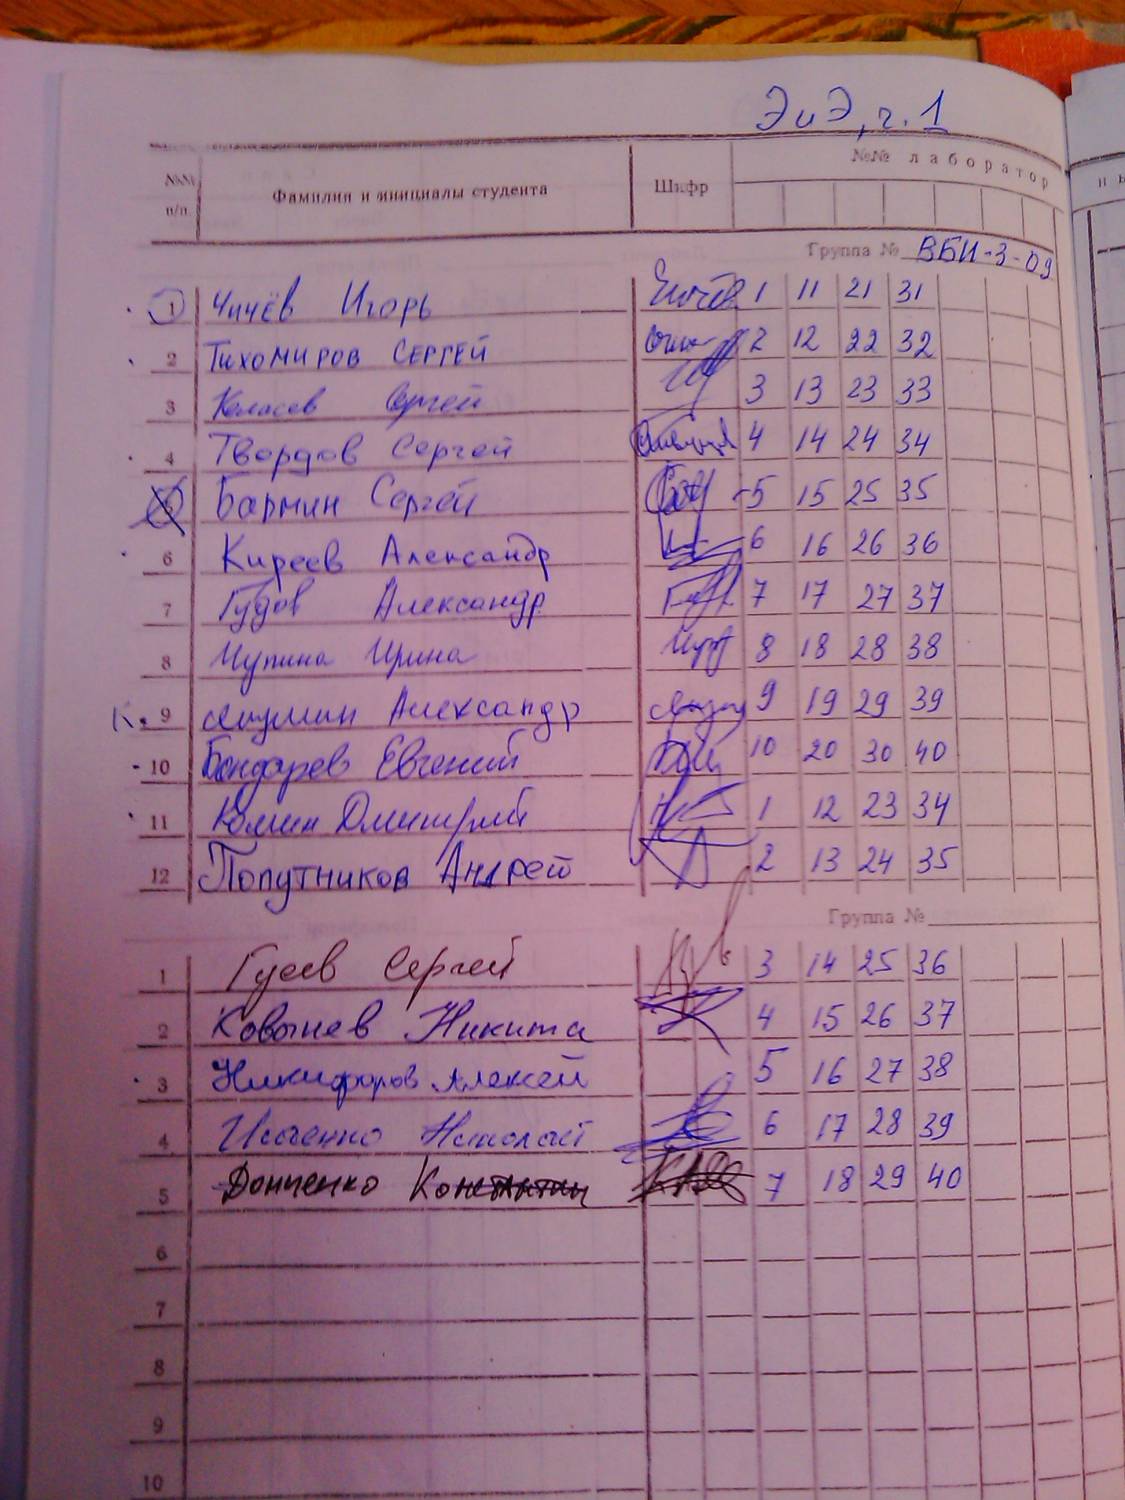 ЭиЭ, ч. 1
№№ п/п. Фамилия и инициалы студента Шифр №№ лаборатор
Группа № ВБИ-3-09
1 Чичёв Игорь 1 11 21 31
2 Тихомиров Сергей 2 12 22 32
3 Коласев Сергей 3 13 23 33
4 Твордов Сергей 4 14 24 34
5 Бармин Сергей 5 15 25 35
6 Киреев Александр 6 16 26 36
7 Гудов Александр 7 17 27 37
8 Ирина 8 18 28 38
9 Александр 9 19 29 39
10 Бондарев Евгений 10 20 30 40
11 Дмитрий 1 12 23 34
12 Попутников Андрей 2 13 24 35
Группа №
1 Гусев Сергей 3 14 25 36
2 Никита 4 15 26 37
3 Никифоров Алексей 5 16 27 38
4 6 17 28 39
5 Донченко Константин 7 18 29 40
6
7
8
9
10